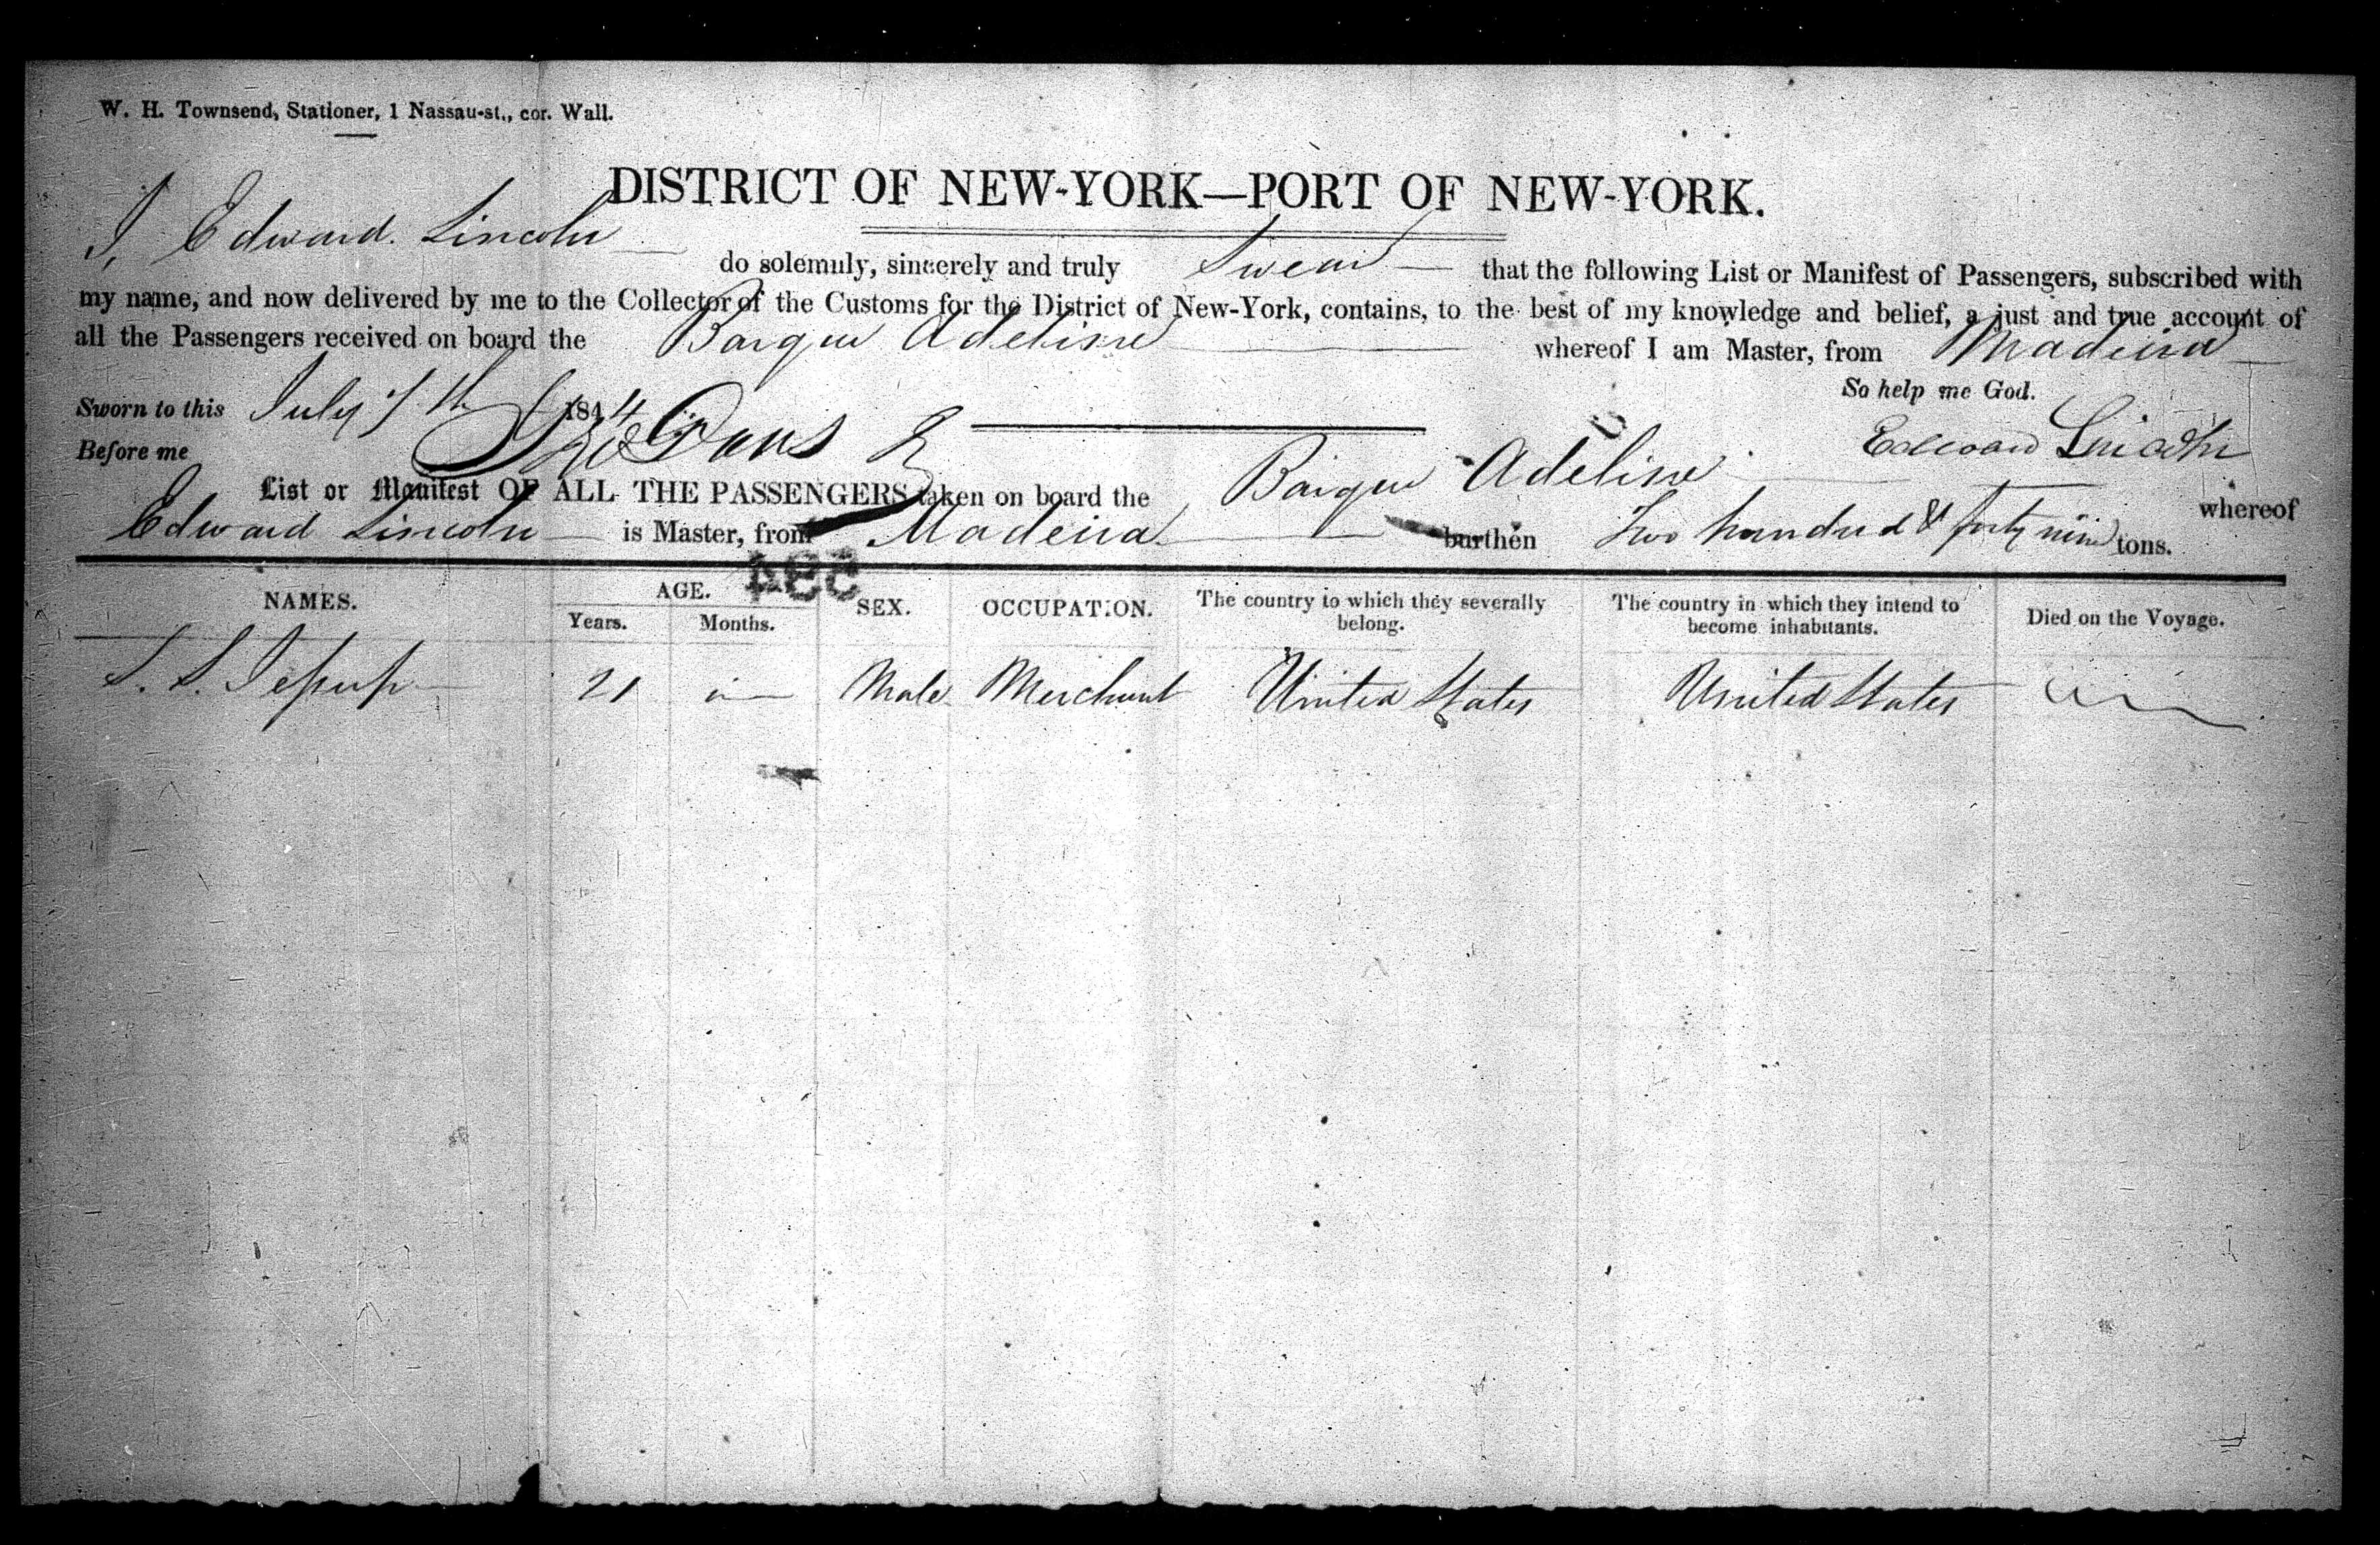 W. H. Townsend, Stationer, 1 Nassau-st., cor. Wall.
DISTRICT OF NEW-YORK—PORT OF NEW-YORK.
I, Edward. Lincoln do solemnly, sincerely and truly Swear that the following List or Manifest of Passengers, subscribed with
my name, and now delivered by me to the Collector of the Customs for the District of New-York, contains, to the best of my knowledge and belief, a just and true account of
all the Passengers received on board the Barque Adeline whereof I am Master, from Madeira
So help me God.
Sworn to this July 7th 1844
Edward Lincoln
Before me
List or Manifest OF ALL THE PASSENGERS taken on board the Barque Adeline whereof
Edward Lincoln is Master, from Madeira burthen Two hundred & forty nine tons.
594
NAMES. AGE. Years. Months. SEX. OCCUPATION. The country to which they severally belong. The country in which they intend to become inhabitants. Died on the Voyage.
S. S. Jessup 21 Male Merchant United States United States